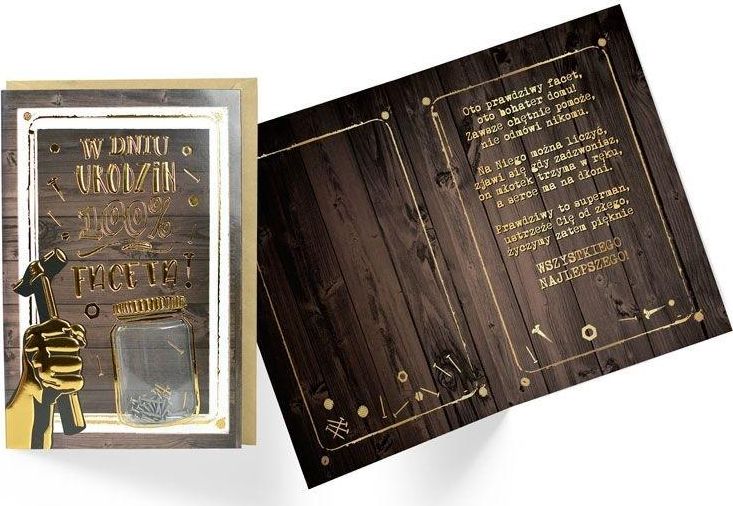 W DNIU
URODZIN
100%
FACETA!
Oto prawdziwy facet,
oto bohater domu!
Zawsze chętnie pomoże,
nie odmówi nikomu.
Na Niego można liczyć,
zjawi się gdy zadzwonisz,
on młotek trzyma w ręku,
a serce ma na dłoni.
Prawdziwy to superman,
ustrzeże Cię od złego,
życzymy zatem pięknie
WSZYSTKIEGO
NAJLEPSZEGO!